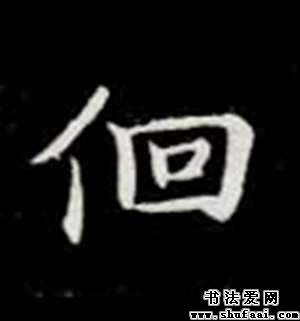 佪
书法爱网
www.shufaai.com